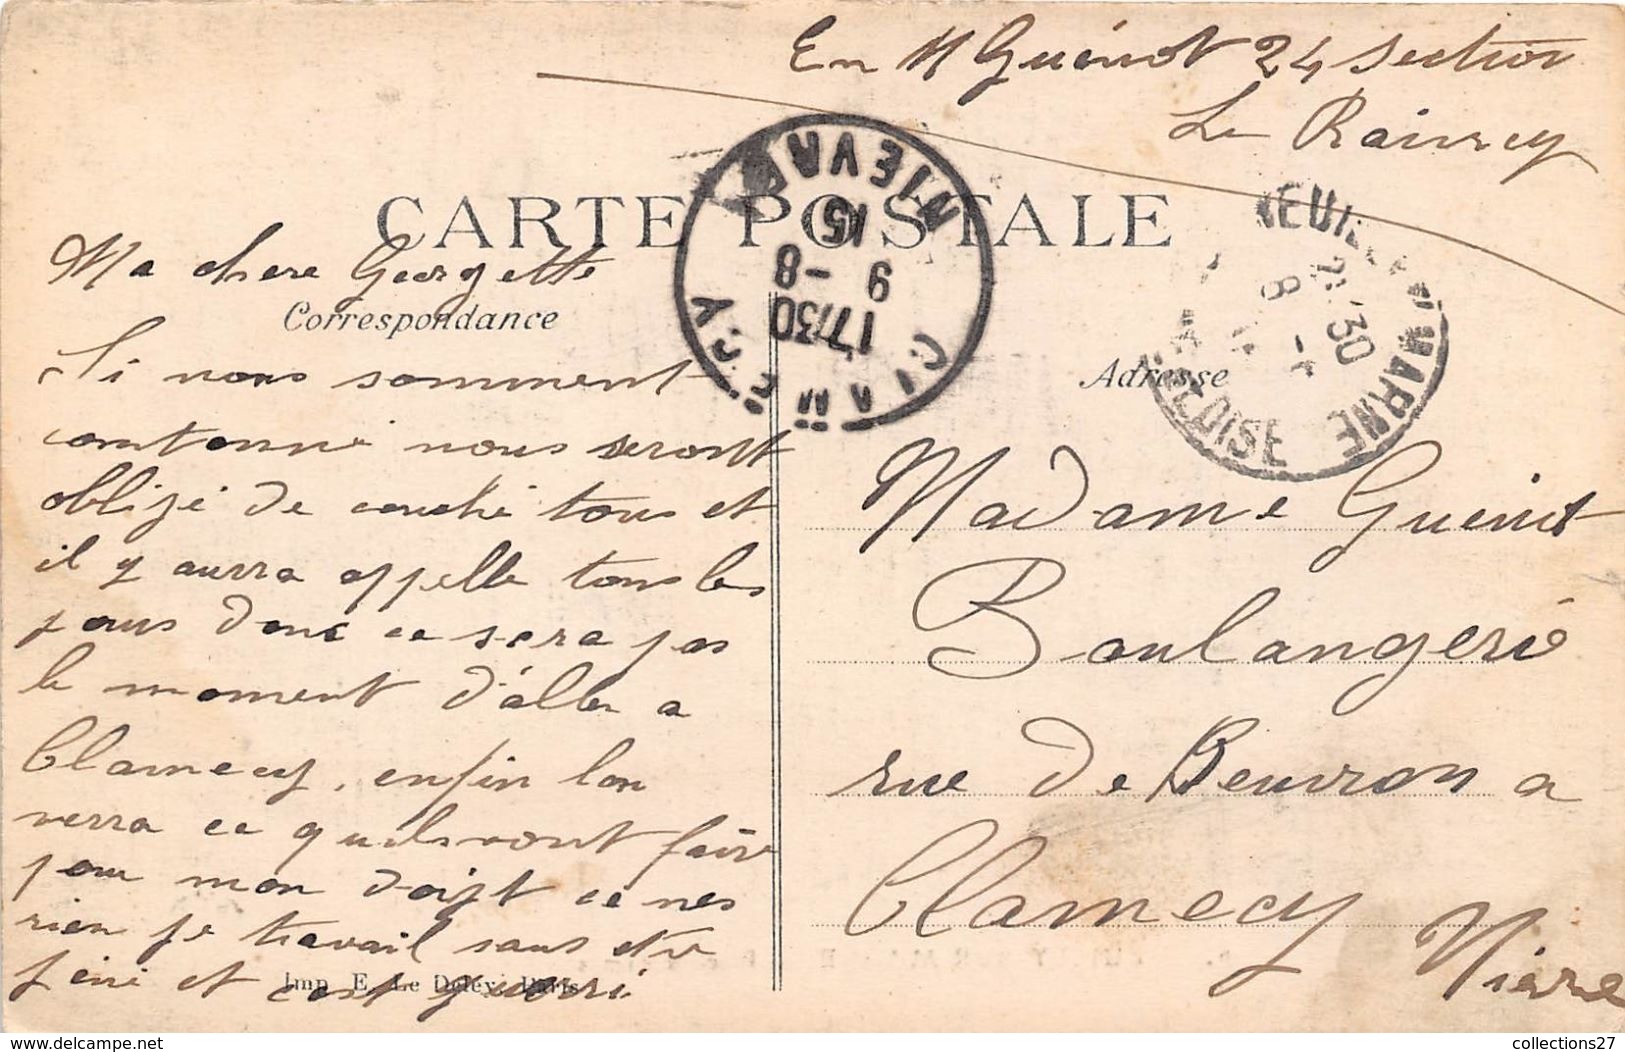 En M Guénot 24 section
Le Raincy
CARTE POSTALE
Ma chere Georgette
Correspondance
Si nous somment
contonné nous seront
obligé de couché tous et
il y aurra appelle tous les
jours donc ce sera pas
le moment d'aller a
Clamecy, enfin lon
verra ce quils vont faire
pour mon doigt ce nes
rien je travail sans etre
jéné et cest guérri
Imp. E. Le Deley, Paris
CLAMECY
NIEVRE
17 30
9 - 8
15
NEUILLY MARNE
30
8
OISE
Adresse
Madame Guénot
Boulangerie
rue de Beuvron a
Clamecy
Nièvre
delcampe.net
collections27